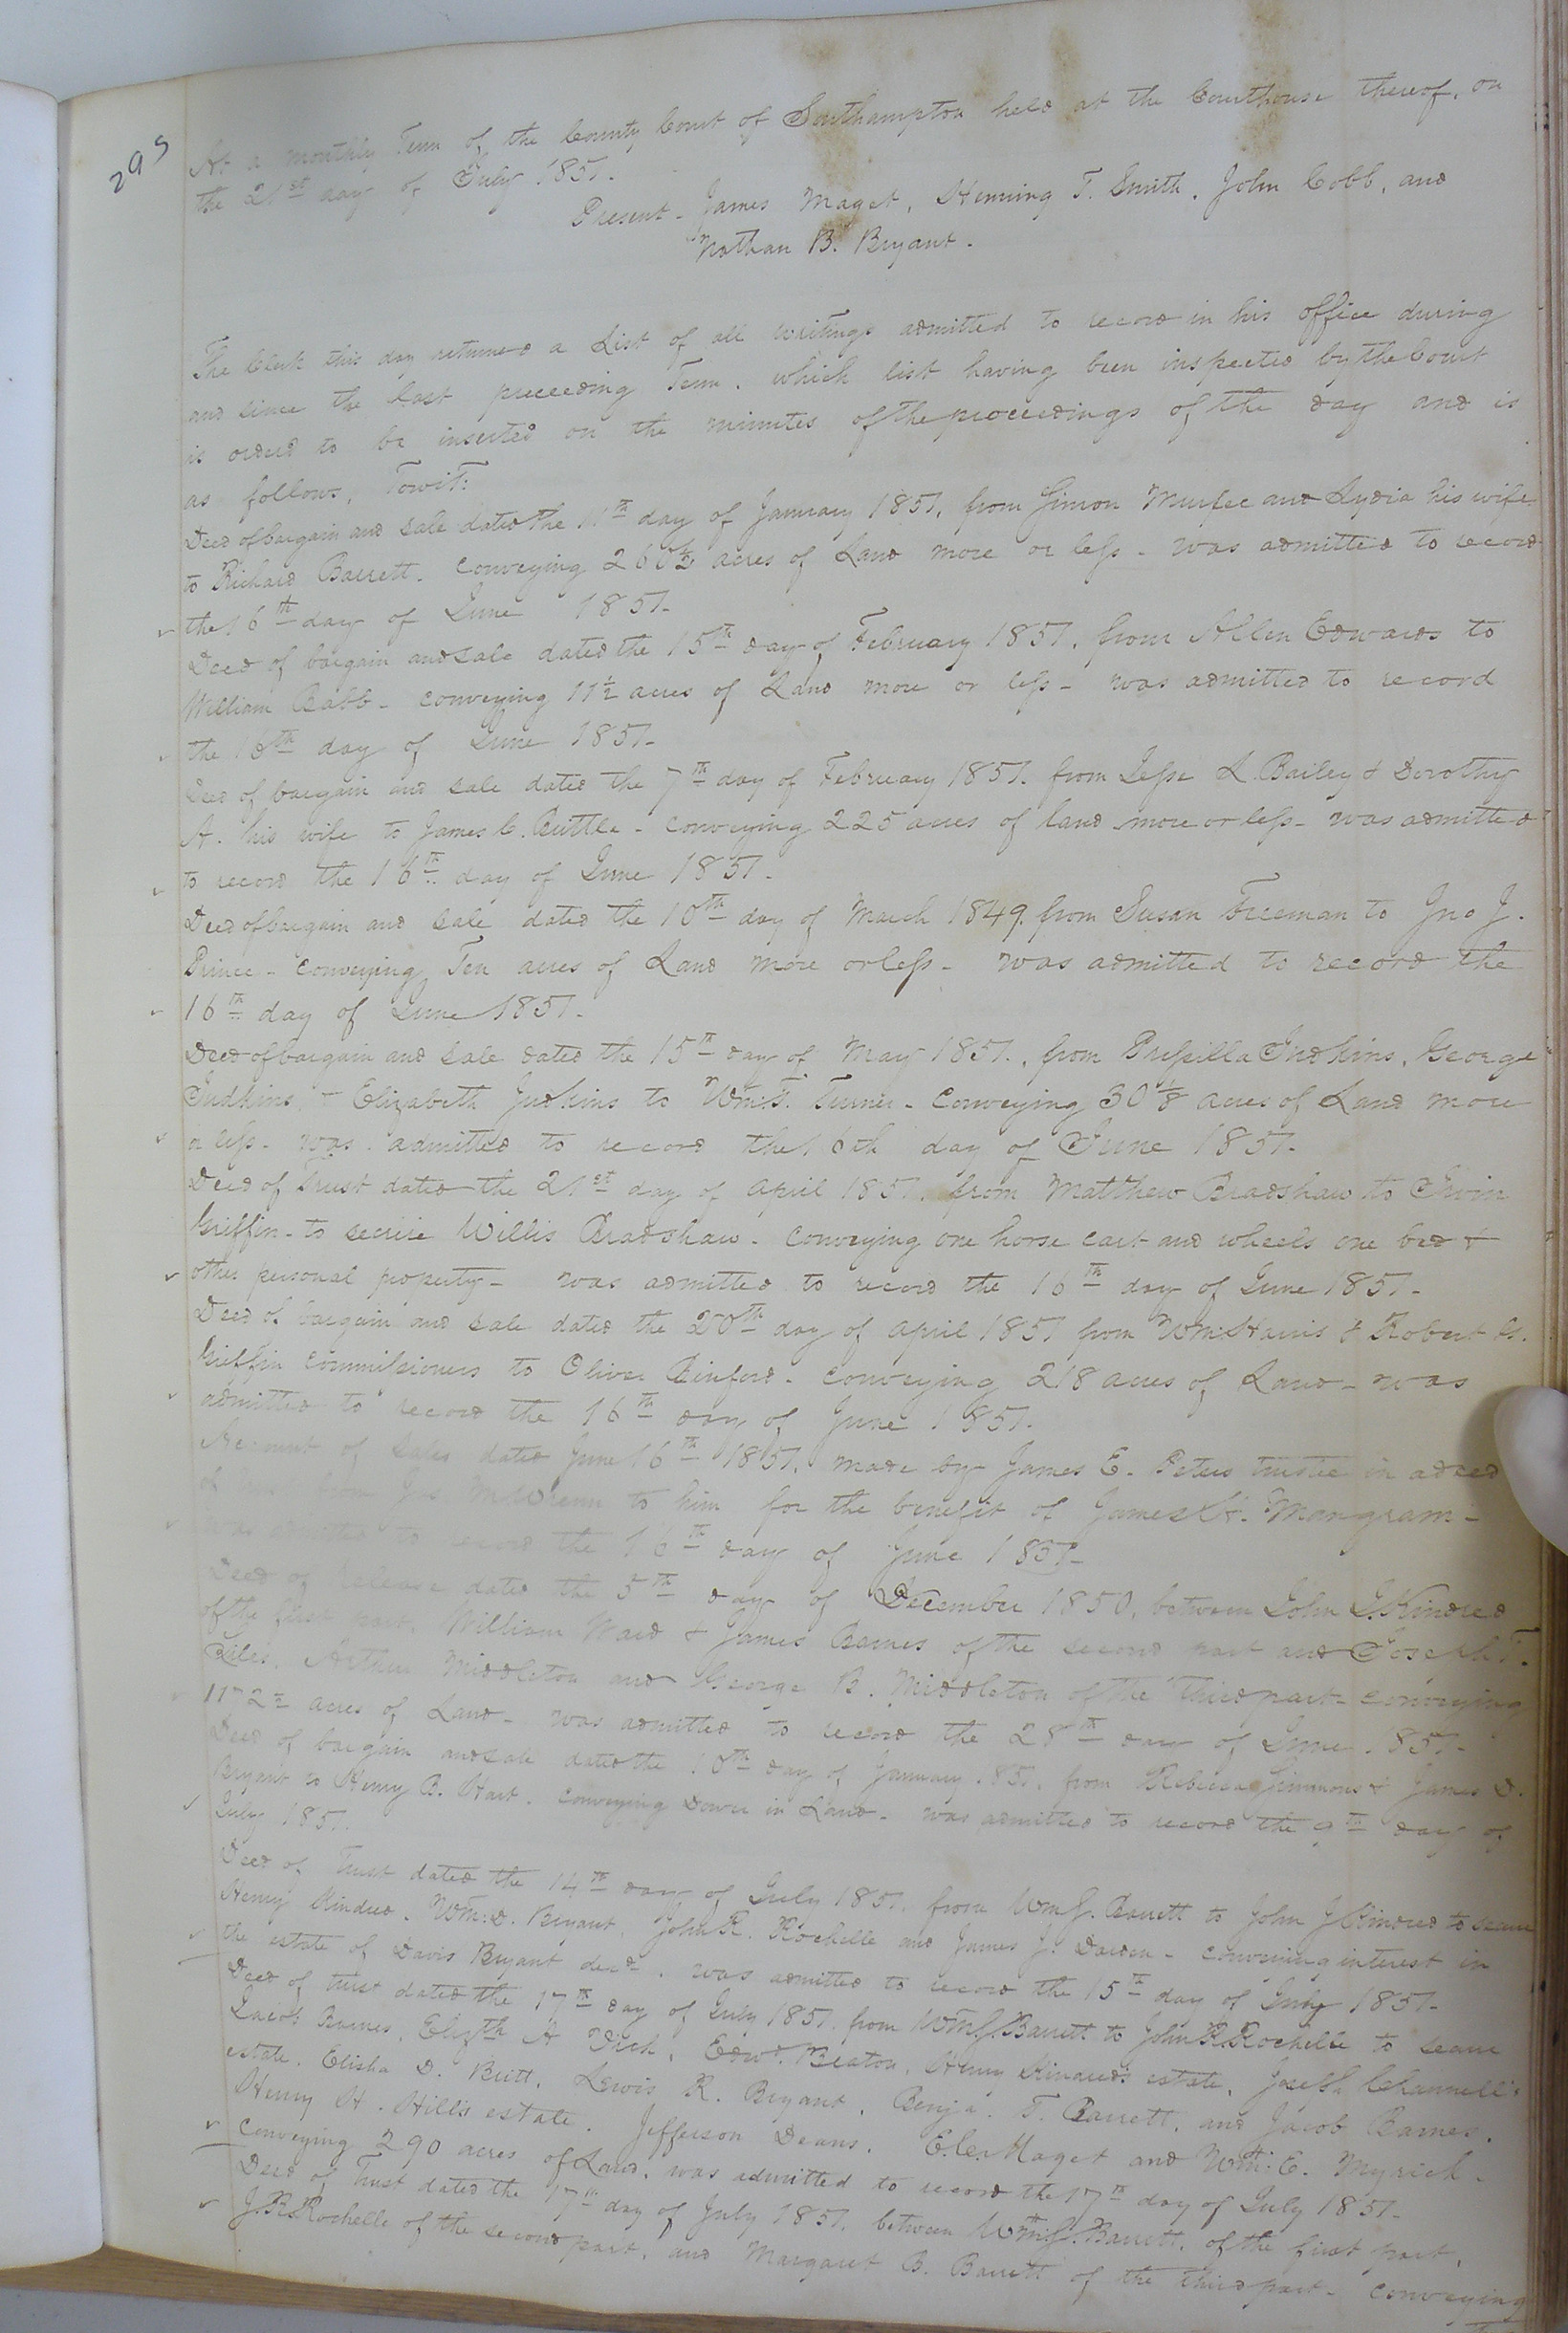 295
At a monthly Term of the County Court of Southampton held at the Courthouse thereof, on
the 21st day of July 1851.
Present - James Maget, Henning T. Smith, John Cobb, and
Nathan B. Bryant.
The Clerk this day returned a List of all writings admitted to record in his office during
and since the last preceeding Term, which list having been inspected by the Court
is ordered to be inserted on the minutes of the proceedings of the day and is
as follows, Towit:
Deed of bargain and sale dated the 11th day of January 1851, from Simon Murfee and Lydia his wife
to Richard Barrett - conveying 260½ acres of Land more or less - was admitted to record
the 16th day of June 1851-
Deed of bargain and sale dated the 15th day of February 1851, from Allen Edwards to
William Babb - conveying 11½ acres of Land more or less - was admitted to record
the 16th day of June 1851-
Deed of bargain and sale dated the 7th day of February 1851, from Jesse L. Bailey & Dorothy
A. his wife to James C. Buttle - conveying 225 acres of land more or less - was admitted
to record the 16th day of June 1851.
Deed of bargain and sale dated the 10th day of March 1849, from Susan Freeman to Jno J.
Prince - conveying Ten acres of Land more or less - was admitted to record the
16th day of June 1851.
Deed of bargain and sale dated the 15th day of May 1851, from Prissilla Judkins, George
Judkins, & Elizabeth Judkins to Wm. T. Turner - conveying 30⅛ acres of Land more
or less - was admitted to record the 16th day of June 1851-
Deed of Trust dated the 21st day of April 1851, from Matthew Bradshaw to Irvin
Griffin - to secure Willis Bradshaw - conveying one horse cart and wheels one bed &
other personal property - was admitted to record the 16th day of June 1851-
Deed of bargain and sale dated the 20th day of April 1851 from Wm. Harris & Robert G.
Griffin commissioners to Oliver Binford - conveying 218 acres of Land - was
admitted to record the 16th day of June 1851.
Account of Sales dated June 16th 1851, made by James E. Peters trustee in a deed
of to him for the benefit of James H. Mangram -
was admitted to record the 16th day of June 1851-
Deed of release dated the 5th day of December 1850, between John J. Kindred
of the first part, William Ward & James Barnes of the second part and Joseph T.
Liles, Arthur Middleton and George B. Middleton of the third part - conveying
acres of Land - was admitted to record the 28th day of June 1851-
Deed of bargain and sale dated the 10th day of January 1851, from Rebecca Simmons & James D.
Bryant to Henry B. Hart, conveying Dower in Land - was admitted to record the 9th day of
July 1851.
Deed of Trust dated the 14th day of July 1851, from Wm J. Barrett to John J Kindred to secure
Henry Kindred, Wm: D. Bryant, John R. Rochelle and James J. Darden - conveying interest in
the estate of Davis Bryant decd. was admitted to record the 15th day of July 1851-
Deed of trust dated the 17th day of July 1851, from Wm J. Barrett to John R. Rochelle to secure
Jacob Barnes, Elizth A Dick, Edwd. Beaton, Henry Kindred's estate, Joseph Channell's
estate, Elisha D. Britt, Lewis R. Bryant, Benja. T. Barrett, and Jacob Barnes,
Henry H. Hill's estate, Jefferson Deans, E.C. Maget and Wm: E. Myrick -
conveying 290 acres of Land, was admitted to record the 17th day of July 1851-
Deed of Trust dated the 17th day of July 1851, between Wm J. Barrett, of the first part,
J. R. Rochelle of the second part, and Margaret B. Barrett of the third part - conveying